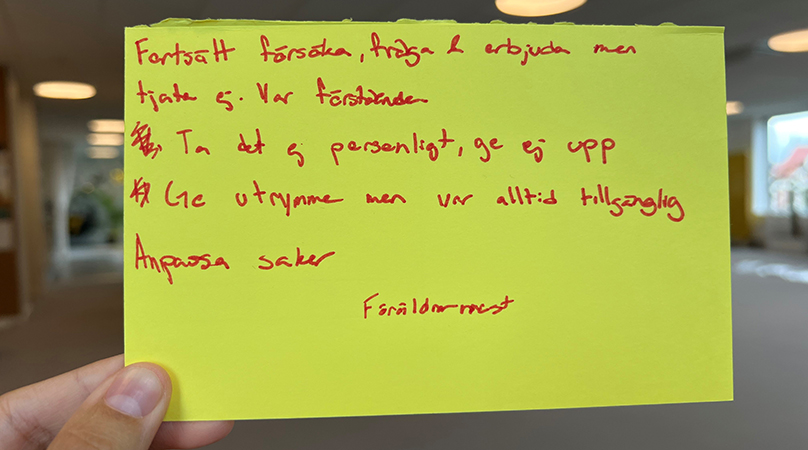 Fortsätt försöka, fråga & erbjuda men
tjata ej. Var förstående
Ta det ej personligt, ge ej upp
Ge utrymme men var alltid tillgänglig
Anpassa saker